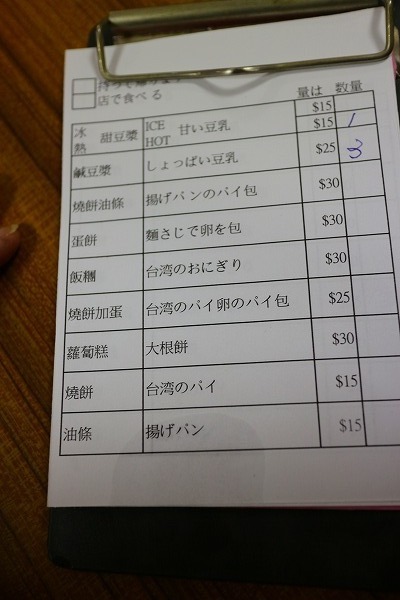 持って帰ります
店で食べる
量は 数量
冰 甜豆漿 ICE 甘い豆乳 $15
熱 HOT $15 1
鹹豆漿 しょっぱい豆乳 $25 3
燒餅油條 揚げパンのパイ包 $30
蛋餅 麵さじで卵を包 $30
飯糰 台湾のおにぎり $30
燒餅加蛋 台湾のパイ卵のパイ包 $25
蘿蔔糕 大根餅 $30
燒餅 台湾のパイ $15
油條 揚げパン $15